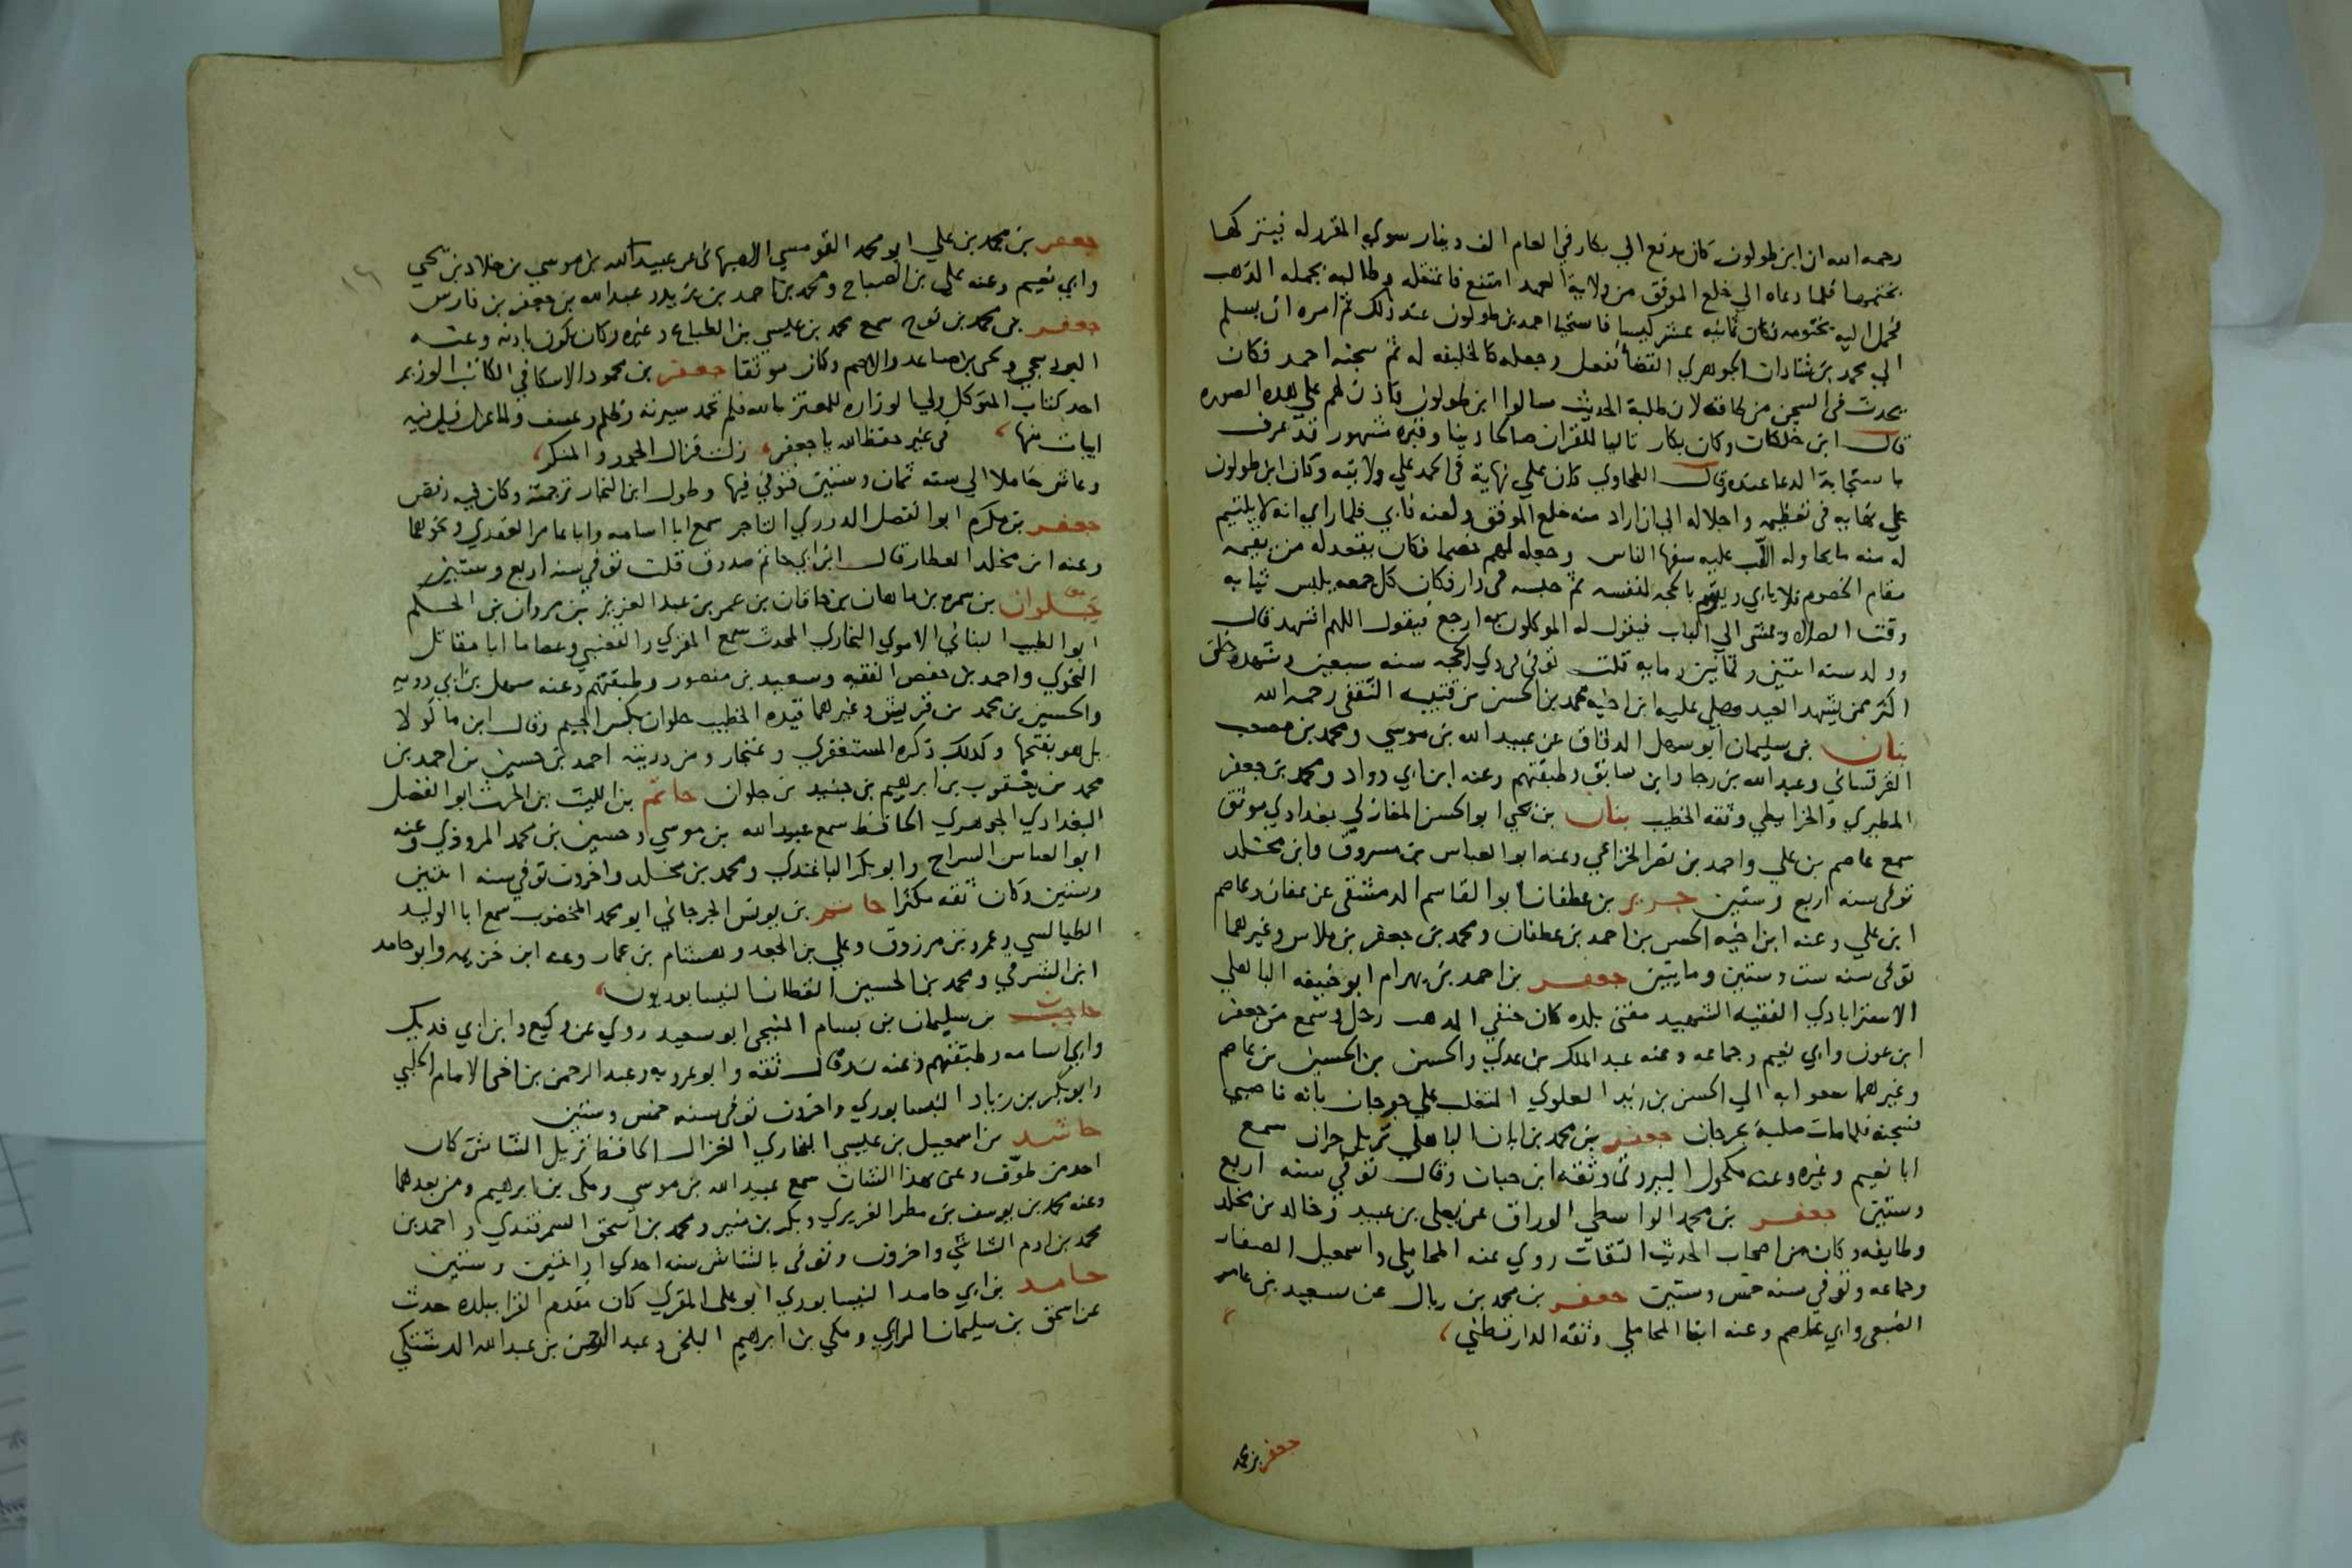 رحمه الله ان ابن طولون كان يدفع الي بكار في العام الف دينار سوي المقرر له فيتركها
بختمها فلما دعاه الي خلع الموفق من ولاية العهد امتنع فاعتقله وطالبه بحمله الذهب
فحمل اليه بختومه فكان ثمانيه عشر كيسا فاستحيا احمد بن طولون عند ذلك ثم امره ان يسلم
الي محمد بن شاذان الجوهري القضا ففعل وجعله كالخليفه له ثم سجنه احمد فكان
يحدث في السجن من طاقه لان طلبة الحديث سالوا ابن طولون فاذن لهم علي هذه الصوره
قال ابن خلكان وكان بكار تاليا للقران صالحا دينا وقبره مشهور قد عرف
باستجابة الدعا عنده وقال الطحاوي كان علي نهاية في الحمد علي ولايته وكان ابن طولون
علي نهايه في تعظيمه واجلاله الي ان اراد منه خلع الموفق ولعنه فابي فلما راي انه لا يلتيم
له منه ما يحاوله الب عليه سفها الناس وجعله لهم خصما فكان يقعد له من يقيمه
مقام الخصوم فلا يابي ويقوم بالحجه لنفسه ثم حبسه في دار فكان كل جمعه يلبس ثيابه
وقت الصلاه ويمشي الي الباب فيقول له الموكلون به ارجع فيقول اللهم اشهد قال
وولد سنه اثنين وثمانين ومايه قلت توفي في ذي الحجه سنه سبعين وشهده خلق
اكثر ممن يشهد العيد وصلي عليه ابن اخيه محمد بن الحسن بن قتيبه الثقفي رحمه الله
بنان بن سليمان ابو سهل الدقاق عن عبيد الله بن موسي ومحمد بن مصعب
القرقساني وعبد الله بن رجا وابن سابق وطبقتهم وعنه ابن ابي دواد ومحمد بن جعفر
المطيري والخرايطي وثقه الخطيب بنان بن يحي ابو الحسن المغازلي بغدادي موثق
سمع عاصم بن علي واحمد بن نصر الخزاعي وعنه ابو العباس بن مسروق وابن مخلد
توفي سنه اربع وستين جرير بن غطفان ابو القاسم الدمشقي عن عفان وعاصم
ابن علي وعنه ابن اخيه الحسن بن احمد بن غطفان ومحمد بن جعفر بن ملاس وغيرهما
توفي سنه ست وستين ومايتين جعفر بن احمد بن بهرام ابو حنيفه الباهلي
الاستراباذي الفقيه الشهيد مفتي بلده كان حنفي المذهب رحل وسمع من جعفر
ابن عون وابي نعيم وجماعه وعنه عبد الملك بن عدي والحسن بن الحسين بن عاصم
وغيرهما سعوا به الي الحسن بن زيد العلوي المتغلب علي جرجان بانه ناصبي
فسجنه فلما مات صلبه بجرجان جعفر بن محمد بن ابان الباهلي نزيل حران سمع
ابا نعيم وغيره وعنه مكحول البيروتي وثقه ابن حبان وقال توفي سنه اربع
وستين جعفر بن محمد الواسطي الوراق عن يعلي بن عبيد وخالد بن مخلد
وطايفه وكان من اصحاب الحديث الثقات روي عنه المحاملي واسمعيل الصفار
وجماعه وتوفي سنه خمس وستين جعفر بن محمد بن ربال عن سعيد بن عامر
الضبعي وابي عاصم وعنه ايضا المحاملي وثقه الدارقطني
جعفر بن محمد
جعفر بن محمد بن علي ابو محمد القومسي الاصبهاني عن عبيد الله بن موسي بن خلاد بن يحي
وابي نعيم وعنه علي بن الصباح ومحمد بن احمد بن يزيد وعبد الله بن جعفر بن فارس
جعفر بن محمد بن نوح سمع محمد بن عيسي بن الطباع وغيره وكان يكون باذنه وعنه
البرديجي ويحي بن صاعد والاصم وكان موثقا جعفر بن محمود الاسكافي الكاتب الوزير
احد كتاب المتوكل ولي الوزاره للمعتز بالله فلم تحمد سيرته وظلم وعسف ولما عزل قيل فيه
ابيات منها في غير حفظ الله يا جعفر زلت فزال الجور والمنكر
وعاش خاملا الي سنه ثمان وستين فتوفي فيها وطول ابن النجار ترجمته وكان فيه رفض
جعفر بن مكرم ابو الفضل الدوري التاجر سمع ابا اسامه وابا عامر العقدي ونحوهما
وعنه ابن مخلد العطار قال ابن ابي حاتم صدوق قلت توفي سنه اربع وستين
جلوان بن سمره بن ماهان بن خاقان بن عمر بن عبد العزيز بن مروان بن الحكم
ابو الطيب البناني الاموي البخاري المحدث سمع المقري والقعنبي وعصاما ابا مقاتل
النحوي واحمد بن حفص الفقيه وسعيد بن منصور وطبقتهم وعنه سهل بن
والحسين بن محمد بن قريش وغيرهما قيده الخطيب جلوان بكسر الجيم وقال ابن ماكولا
بل هو بفتحها وكذلك ذكره المستغفري وغنجار ومن ذريته احمد بن حسين بن احمد بن
محمد بن يعقوب بن ابرهيم بن جنيد بن جلوان حاتم بن الليث بن الحرث ابو الفضل
البغدادي الجوهري الحافظ سمع عبيد الله بن موسي وحسين بن محمد المروذي وعنه
ابو العباس السراج وابو بكر الباغندي ومحمد بن مخلد واخرون توفي سنه اثنين
وستين وكان ثقه مكثرا حاتم بن يونس الجرجاني ابو محمد المخضوب سمع ابا الوليد
الطيالسي وعمرو بن مرزوق وعلي بن الجعد وهشام بن عمار وعنه ابن خزيمه وابو حامد
ابن الشرقي ومحمد بن الحسين القطان النيسابوريون
حاجب بن سليمان بن بسام المنبجي ابو سعيد روي عن وكيع وابن ابي فديك
وابي اسامه وطبقتهم وعنه وقال ثقه وابو عروبه وعبد الرحمن بن اخي الامام الحلبي
وابو بكر بن زياد النيسابوري واخرون توفي سنه خمس وستين
حاشد بن اسمعيل بن عيسي البخاري الغزال الحافظ نزيل الشاش كان
احد من طوف وعني بهذا الشان سمع عبيد الله بن موسي ومكي بن ابرهيم ومن بعدهما
وعنه محمد بن يوسف بن مطر الفربري وبكر بن منير ومحمد بن اسحق السمرقندي واحمد بن
محمد بن ادم الشاشي واخرون وتوفي بالشاش سنه احدي او اثنين وستين
حامد بن ابي حامد النيسابوري ابو علي المقري كان مقدم القرا ببلده حدث
عن اسحق بن سليمان الرازي ومكي بن ابرهيم البلخي وعبد الرحمن بن عبد الله الدشتكي